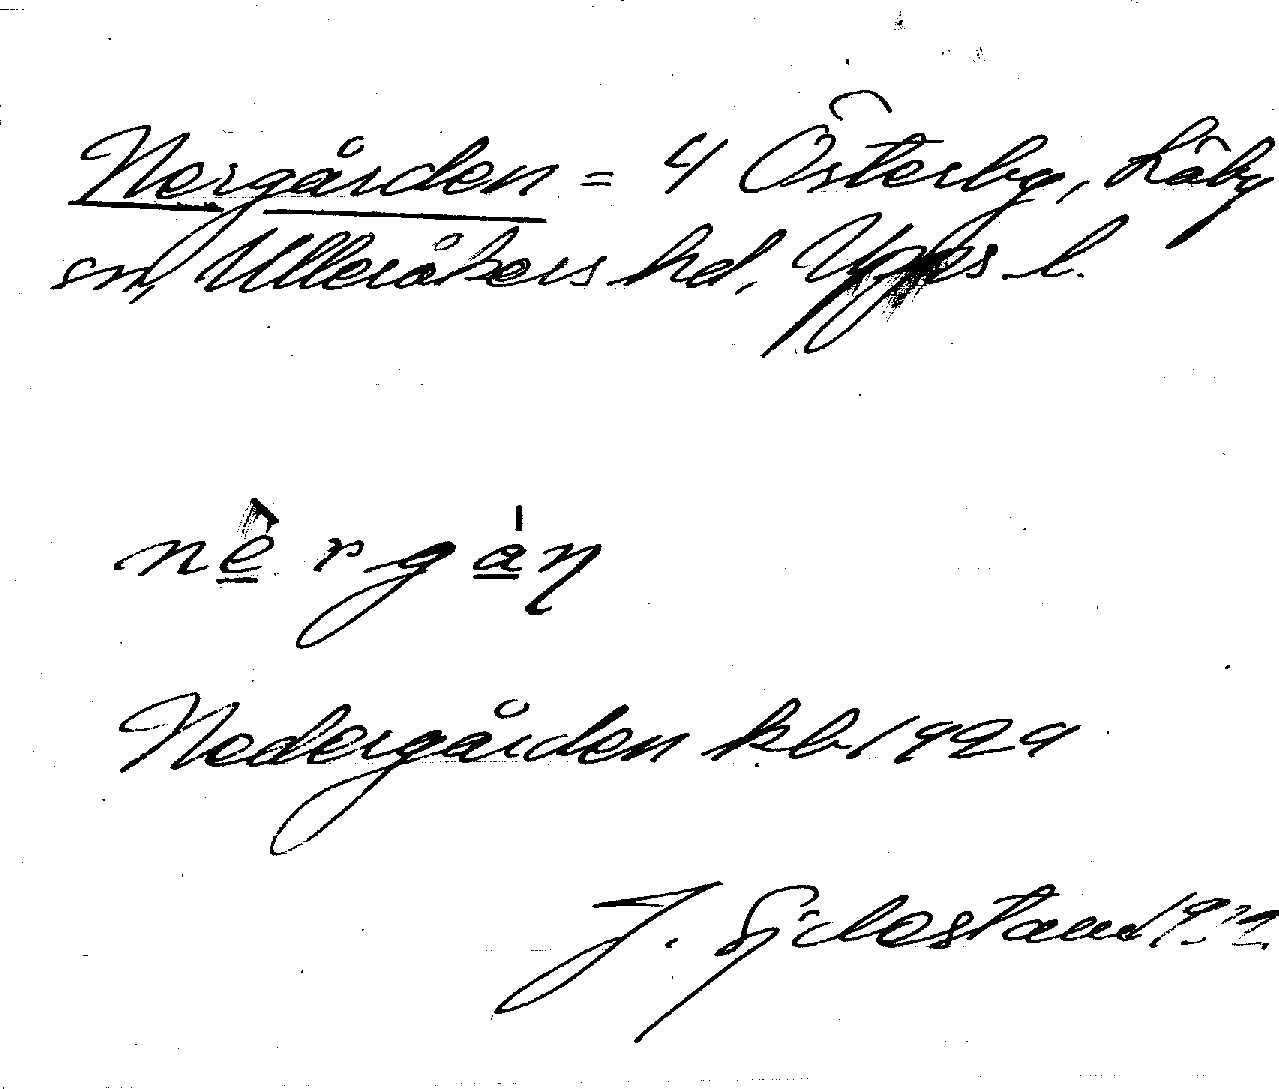 Nergården = 4 Österby, Läby
sn, Ulleråkers hd, Upps l.
nè rgáŋ
Nedergården kb 1929
J.